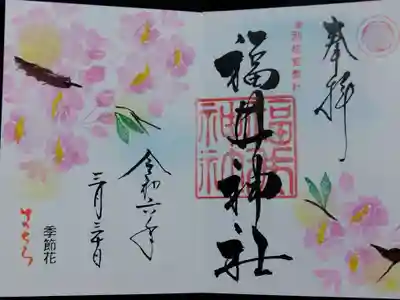 奉拝
別格官幣社
福井神社
福井神社
令和六年
三月三十日
季節花
さくら